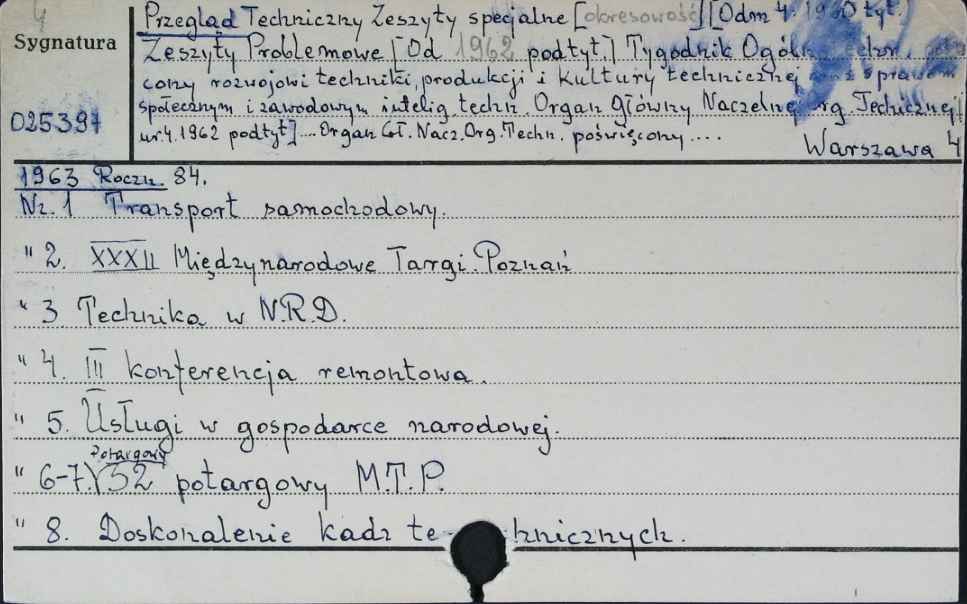 4
Przegląd Techniczny Zeszyty specjalne [okresowość] [Odm 4. 1960 tyt.]
Sygnatura
Zeszyty Problemowe [Od 1962 podtyt.] Tygodnik Ogólno
cony rozwojowi techniki, produkcji i kultury technicznej sprawom
społecznym i zawodowym intelig. techn. Organ Główny Naczelnej Org. Technicznej
025397
nr. 4. 1962 podtyt] ... Organ Gł. Nacz. Org. Techn. poświęcony ...
Warszawa 4
1963 Roczn. 84.
Nr. 1 Transport samochodowy.
" 2. XXXII Międzynarodowe Targi. Poznań
" 3 Technika w N.R.D.
" 4. III konferencja remontowa.
" 5. Usługi w gospodarce narodowej.
Potargowy
" 6-7. 32 potargowy M.T.P.
" 8. Doskonalenie kadr te-chnicznych.